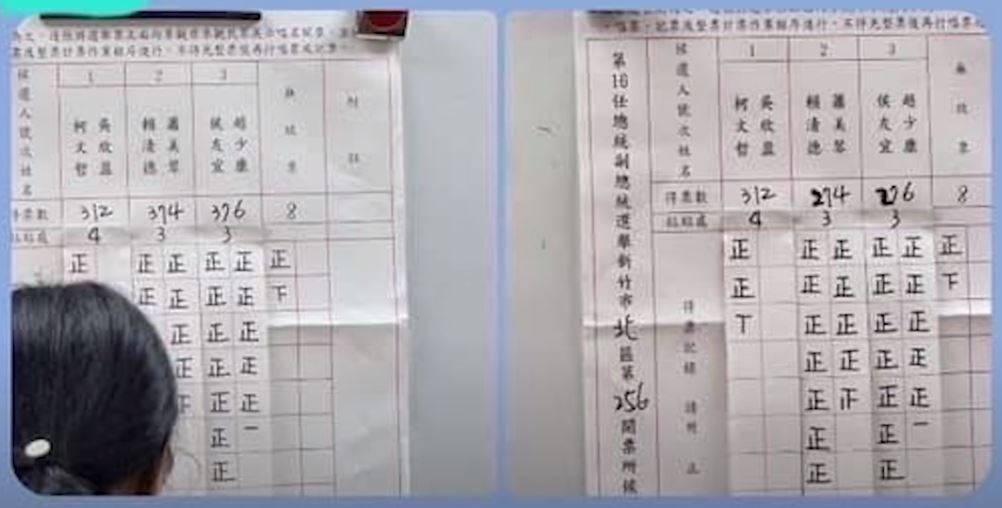 候選人號次姓名
1
2
3
柯文哲 吳欣盈
賴清德 蕭美琴
侯友宜 趙少康
無效票
附註
得票數
312
374
376
8
粘貼處
4
3
3
正
正 正
正 正
正
正 正
正 正
下
正
正 正
正
正 正
正 正
正 一
正
票後整票計票作業程序進行,不得先整票後再行唱票
第16任總統副總統選舉新竹市北區第256開票所候
候選人號次姓名
1
2
3
柯文哲 吳欣盈
賴清德 蕭美琴
侯友宜 趙少康
無效票
得票數
312
274
276
8
粘貼處
4
3
3
得票記錄 請用正
正
正 正
正 正
正
正
正 正
正 正
下
丅
正 正
正 正
正 正
正 正
正 正
正 正
正
正 一
正
正